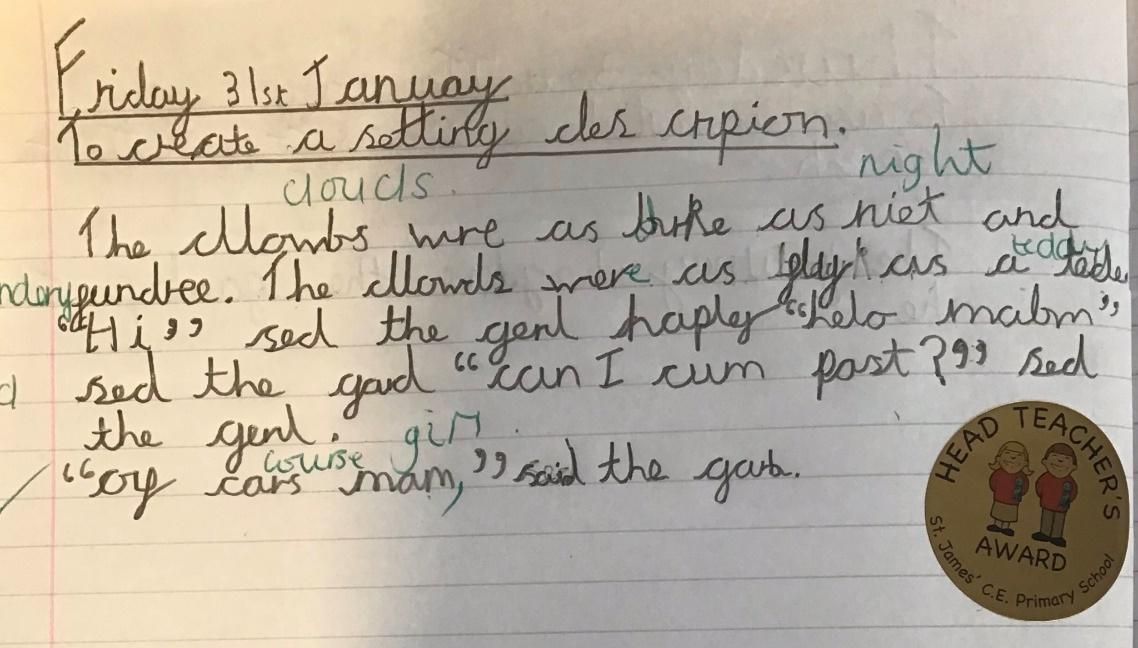 Friday 31st January
To create a setting des cripion.
clouds. night
The cllowbs wre as as niet and
teddy
ndary pundree. The cllowds were as as a tede
"Hi" sed the genl haply "helo mabm"
d sed the gaud "can I cum past?" sed
the genl. girl.
course
"oy cars mam," said the garb.
HEAD TEACHER'S
AWARD
St. James' C.E. Primary School